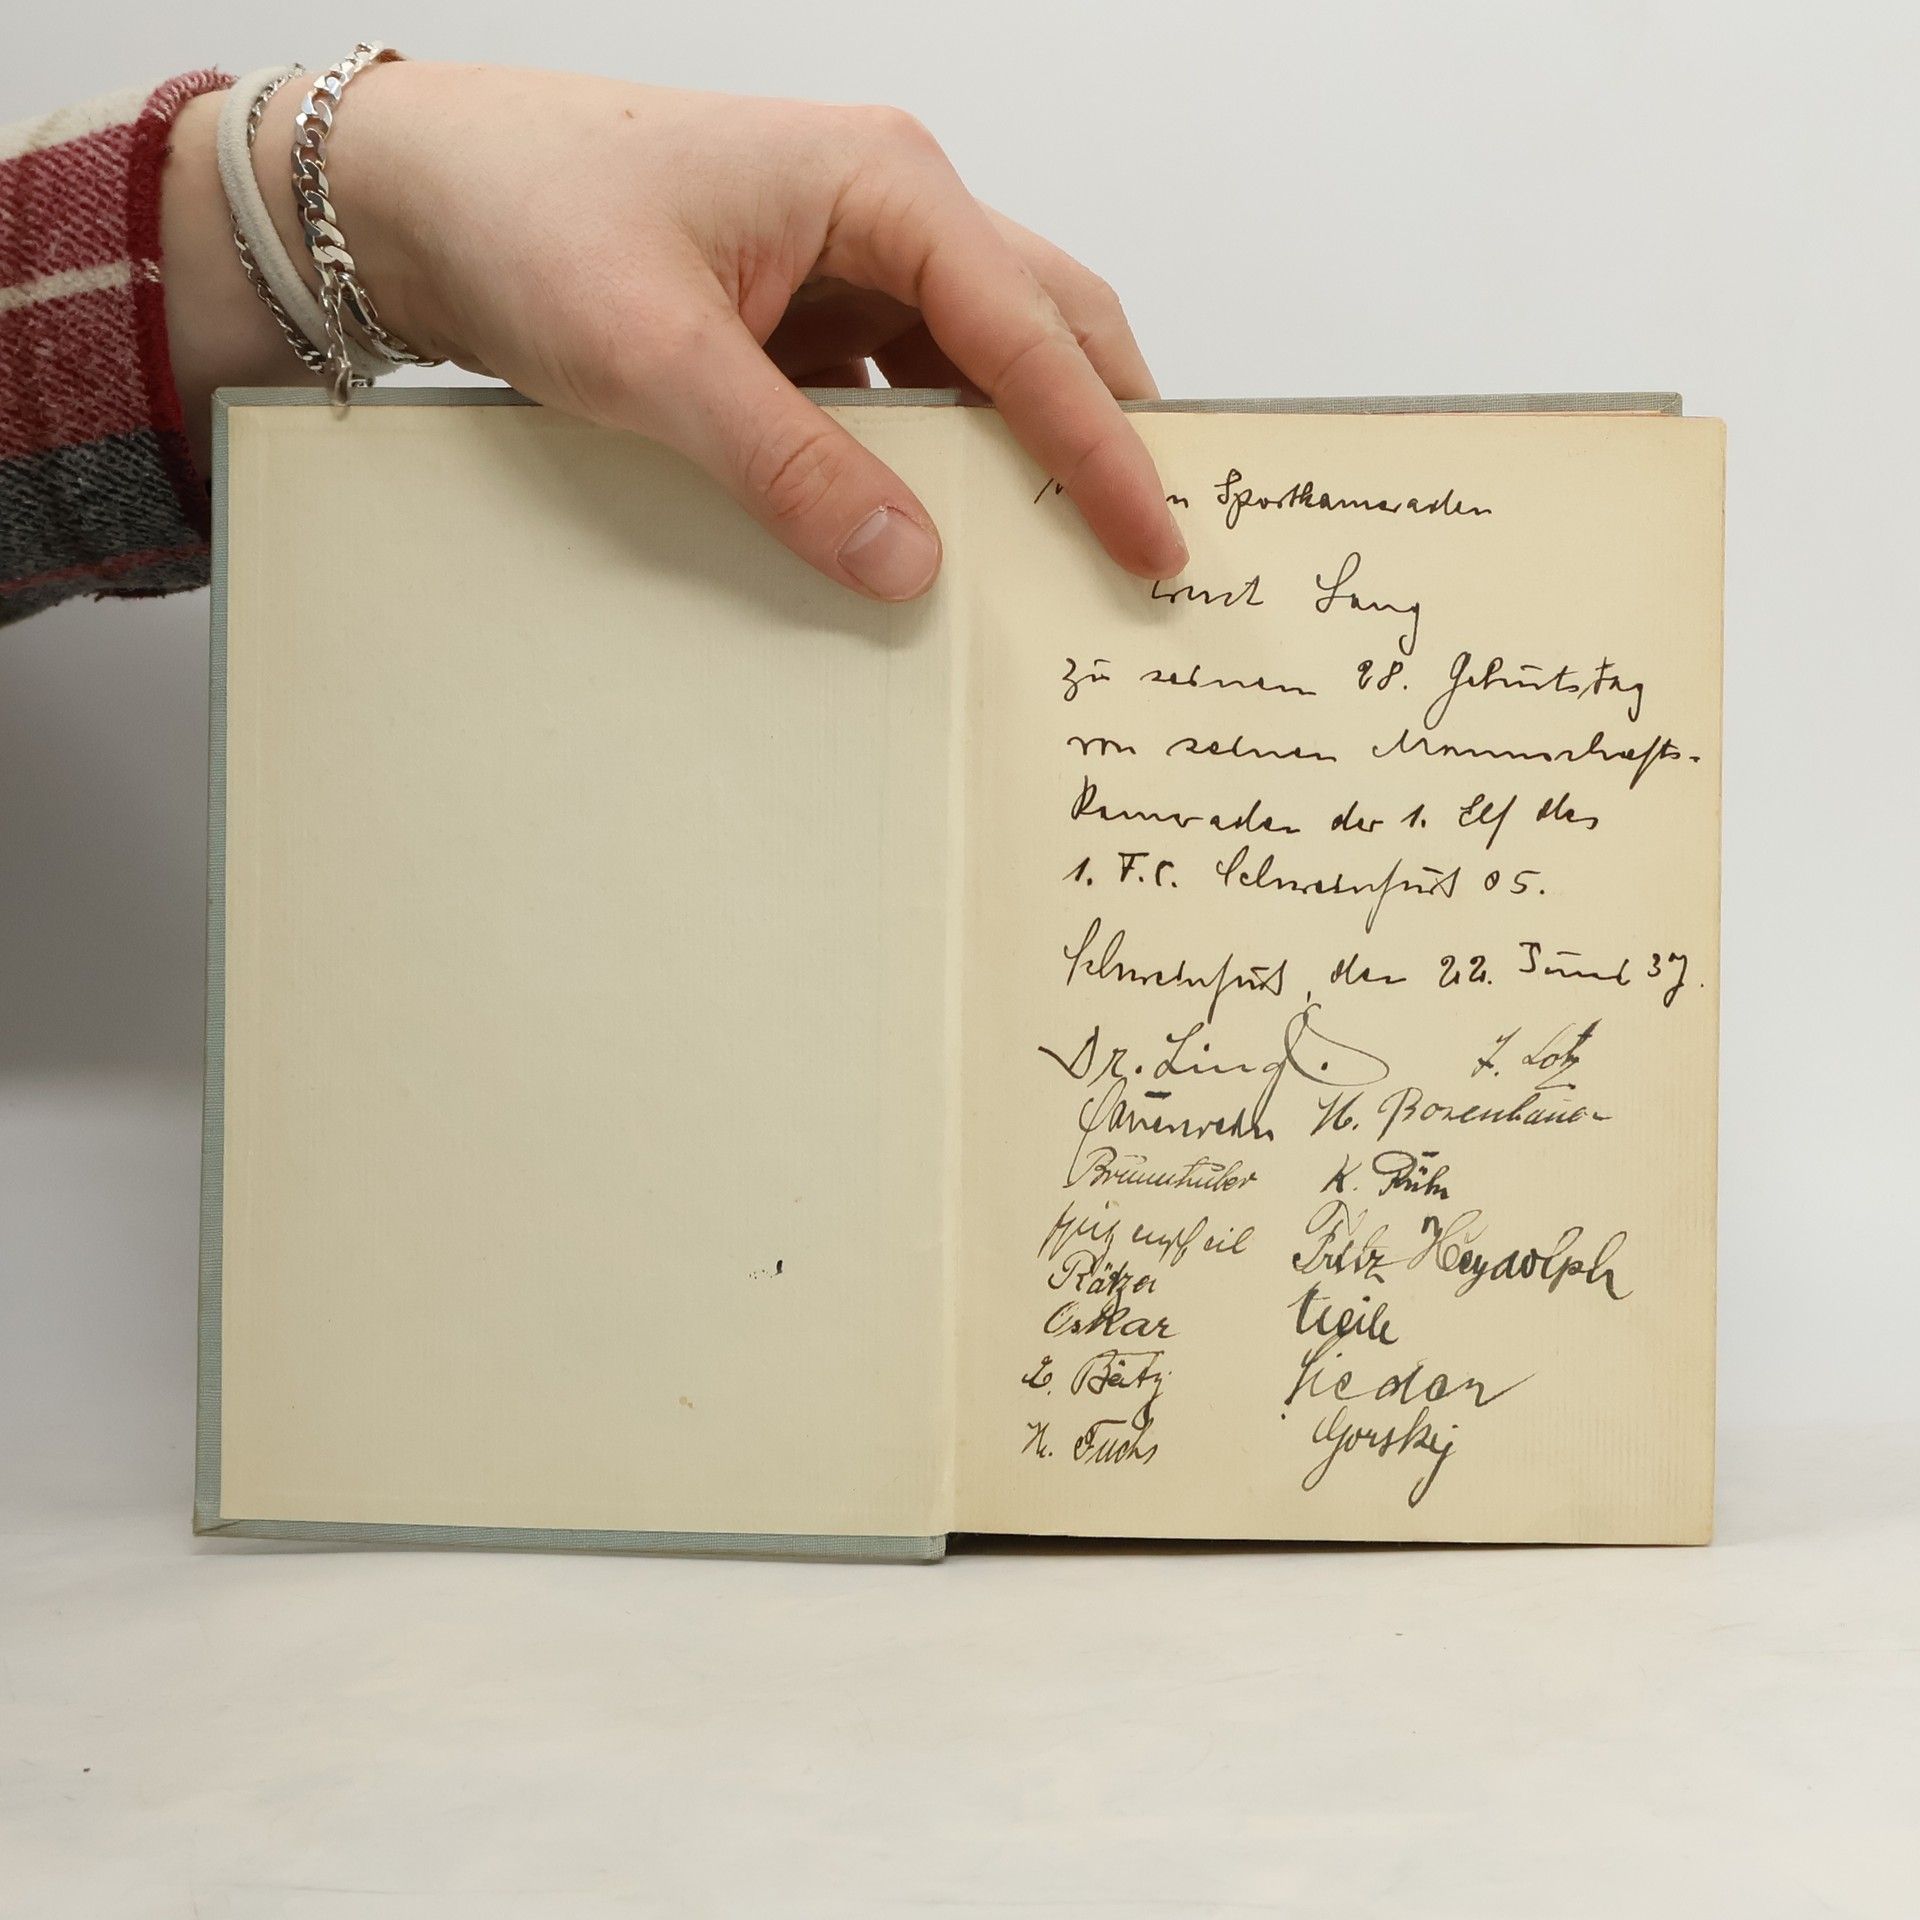 Sportkameraden
Lang
zu seinem 28. Geburtstag
von seinen Mannschafts-
kameraden der 1. Elf des
1. F.C. Schweinfurt 05.
Schweinfurt, den 22. Juni 37.
Dr. Lingl. F. Lotz
H. Rosenbauer
Brunnhuber K. Rühr
Fritz Heydolph
Rätzer
Oskar
L. Bätz
H. Fuchs Gorskij